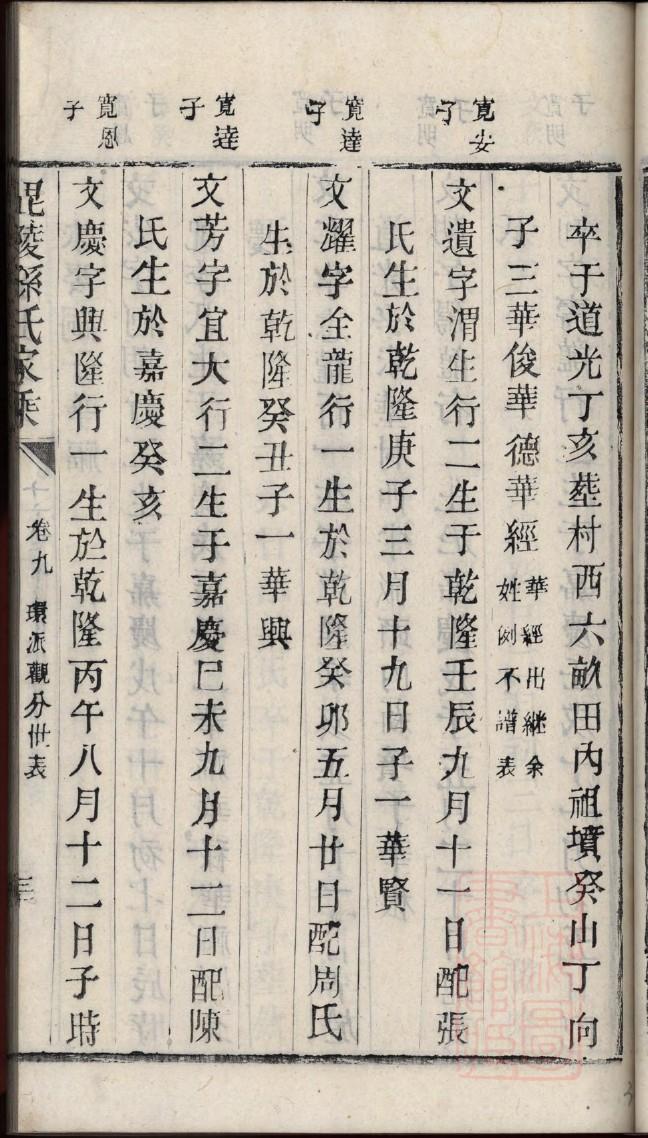 卒于道光丁亥塟村西六畝田內祖墳癸山丁向
子三華俊華德華經華經出継余
姓例不譜表
寬安
子
文遺字渭生行二生于乾隆壬辰九月十一日配張
氏生於乾隆庚子三月十九日子一華賢
寬達
子
文耀字全龍行一生於乾隆癸卯五月廿日配周氏
生於乾隆癸丑子一華興
寬達
子
文芳字宜大行二生于嘉慶巳未九月十二日配陳
氏生於嘉慶癸亥
寬恩
子
文慶字興隆行一生於乾隆丙午八月十二日子時
毘陵孫氏家乘
卷九
環派觀分世表